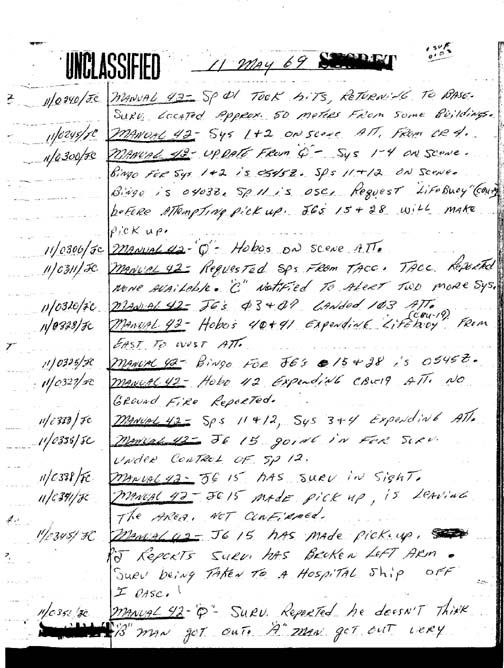 UNCLASSIFIED 11 May 69 SECRET
11/0240/JC MANUAL 42- Sp 01 Took hits, Returning to Base.
Surv. Located Approx. 50 meters From some Buildings.
11/0245/JC MANUAL 42- Sys 1+2 on scene ATT. From CR 4.
11/0300/JC MANUAL 42- UPDATE From "Q"- Sys 1-4 on scene.
Bingo For Sys 1+2 is 0545Z. Sps 11+12 on scene.
Bingo is 0403Z. Sp 11 is OSC. Request "LifeBuoy"
before Attempting pick up. JG's 15+28 will make
pick up.
11/0306/JC MANUAL 42-"Q"- Hobos on scene ATT.
11/0311/JC MANUAL 42- Requested Sps From TACC. TACC Reported
none available. "C" Notified To Alert Two more Sys.
11/0320/JC MANUAL 42- JG's 03+09 Landed 103 ATT.
11/0323/JC MANUAL 42- Hobo's 40+41 Expending "Lifebuoy" (CBU-19) From
EAST To WEST ATT.
11/0325/JC MANUAL 42- Bingo For JG's 15+28 is 0545Z.
11/0327/JC MANUAL 42- Hobo 42 Expending CBU19 ATT. No
Ground Fire Reported.
JC MANUAL 42- Sps 11+12, Sys 3+4 Expending ATT.
11/0336/JC MANUAL 42- JG 15 going in For Surv.
Under Control of Sp 12.
11/0338/JC MANUAL 42- JG 15 has surv in sight.
JC MANUAL 42- JG15 made pick up, is Leaving
The Area. Not Confirmed.
11/0345/JC MANUAL 42- JG 15 has made pick-up.
PJ Reports Surv. has Broken Left Arm.
Surv being Taken to A Hospital Ship off
I DASC.
JC MANUAL 42-"Q"- Surv. Reported he doesn't Think
"B" man got out. "A" man got out very